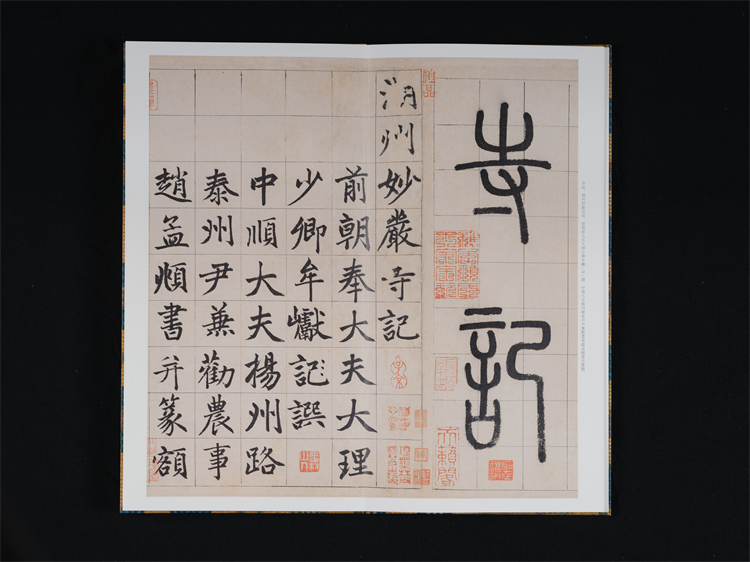 寺記
湖州妙嚴寺記
前朝奉大夫大理
少卿牟巘記譔
中順大夫揚州路
泰州尹兼勸農事
趙孟頫書并篆額
天籟閣